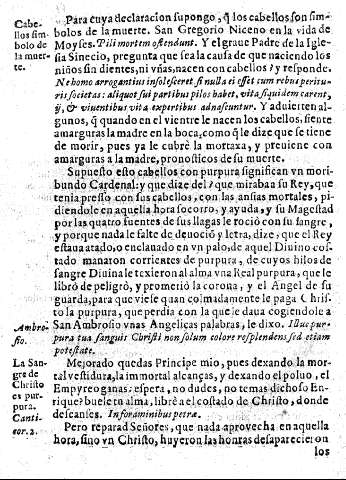 Para cuya declaracion supongo, q̃ los cabellos son sim-
bolos de la muerte. San Gregorio Niceno en la vida de
Moyses. Pili mortem ostendunt. Y el graue Padre de la Igle-
sia Sinecio, pregunta que sea la causa de que naciendo los
niños sin dientes, ni vñas, nacen con cabellos? y responde.
Ne homo arrogantius insolesceret, si nulla ei esset cum rebus perituris
societas: aliquot sui partibus pilos habet, vita siquidem carent,
ij, & viuentibus vita expertibus adnascuntur. Y aduierten al-
gunos, q̃ quando en el vientre le nacen los cabellos, siente
amarguras la madre en la boca, como q̃ le dize que se tiene
de morir, pues ya le cubrẽ la mortaxa, y preuiene con
amarguras a la madre, pronosticos de su muerte.
Cabe-
llos sim-
bolo de
la muer-
te.
Supuesto esto cabellos con purpura significan vn mori-
bundo Cardenal: y que dize del? que miraba a su Rey, que
tenia presto con sus cabellos, con las ansias mortales, pi-
diendole en aquella hora socorro, y ayuda, y su Magestad
por las quatro fuentes de sus llagas le roció con su sangre,
y porque nada le falte de deuociõ y letra, dize, que el Rey
estaua atado, o enclauado en vn palo, de aquel Diuino cos-
tado manaron corrientes de purpura, de cuyos hilos de
sangre Diuina le texieron al alma vna Real purpura, que le
librò de peligrò, y prometiò la corona, y el Angel de su
guarda, para que viese quan colmadamente le paga Chris-
to la purpura, que perdia con la que le daua cogiendole a
San Ambrosio vnas Angelicas palabras, le dixo. Illae pur-
pura tua sanguis Christi non solum colore resplendens, sed etiam
potestate.
Ambro-
sio.
Mejorado quedas Principe mio, pues dexando la mor-
tal vestidura, la immortal alcanças, y dexando el poluo, el
Empyreo ganas: espera, no dudes, no temas dichoso En-
rique? buele tu alma, librẽ a el costado de Christo, donde
descanses. In foraminibus petræ.
La San-
gre de
Christo
es pur-
pura.
Canti-
cor. 2.
Pero reparad Señores, que nada aprovecha en aquella
hora, sino vn Christo, huyeron las honras desaparecieron
los